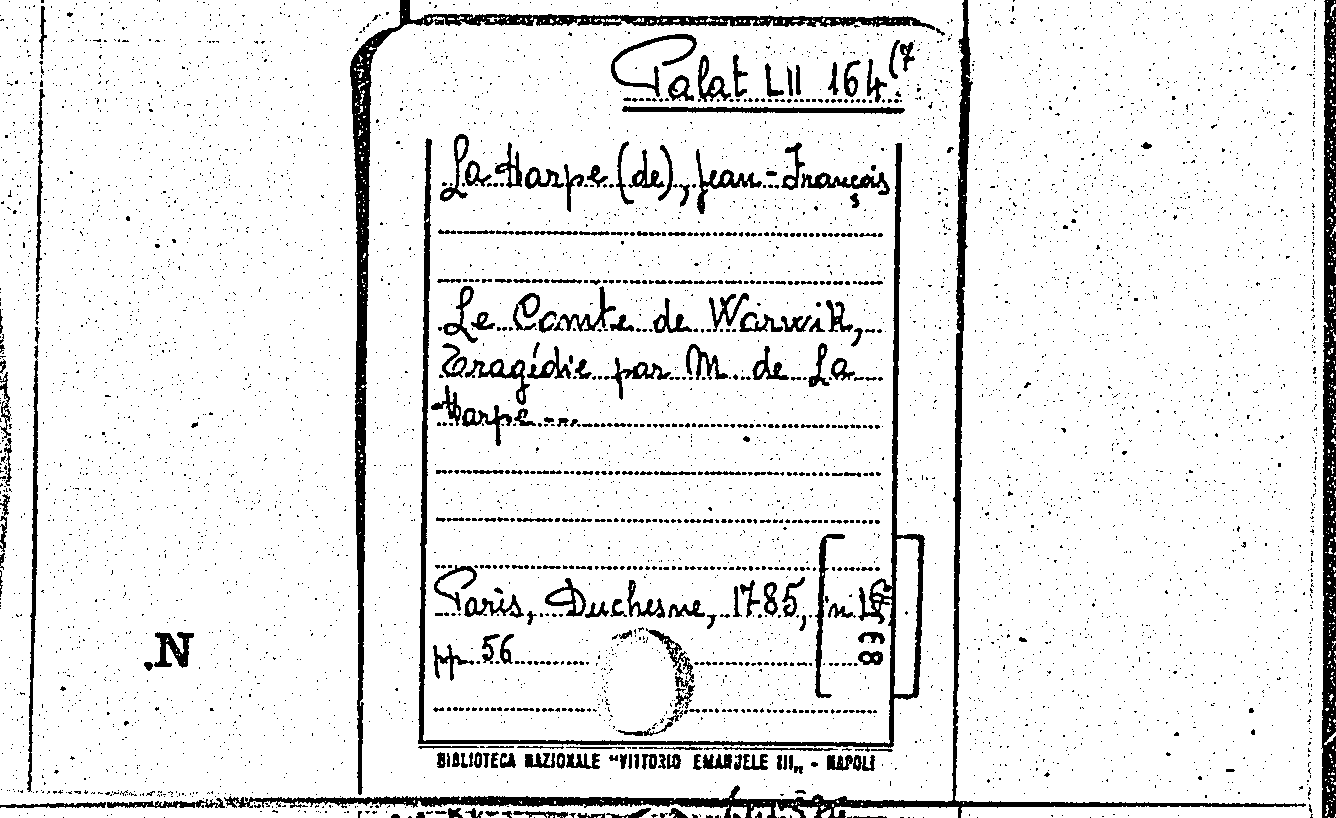 Palat LII 164(7
La Harpe (de), Jean-François
Le Comte de Warwik,
Tragédie par M. de La
Harpe ---
Paris, Duchesne, 1785, in
pp. 56
.N
BIBLIOTECA NAZIONALE "VITTORIO EMANUELE III„ - NAPOLI